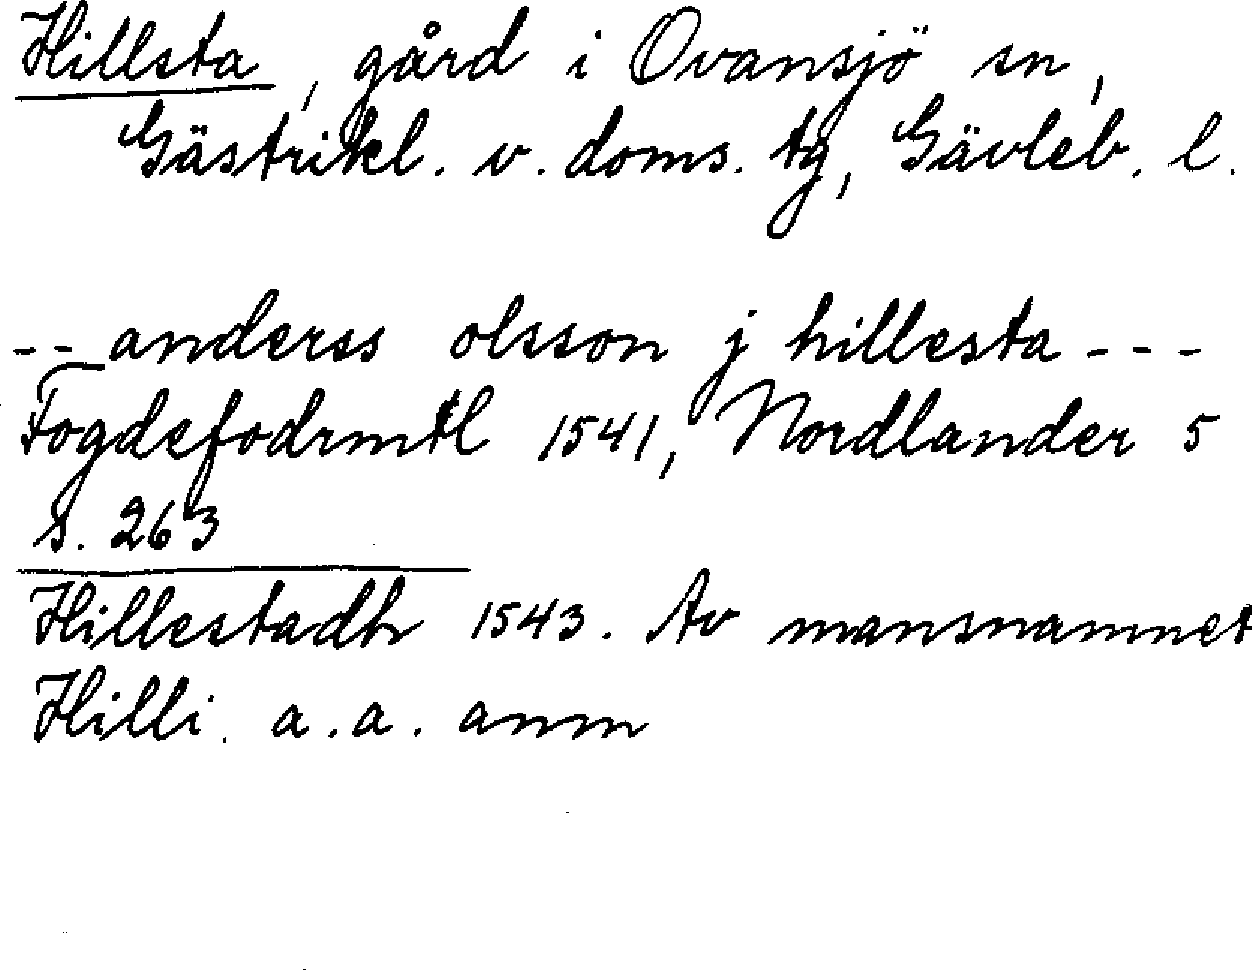 Hillsta, gård i Ovansjö sn,
Gästrikl. v. doms. tg, Gävleb. l.
-- anderss olsson j hillesta ---
Fogdefodrmtl 1541, Nordlander 5
s. 263
Hillestadh 1543. Av mansnamnet
Hilli. a.a. anm